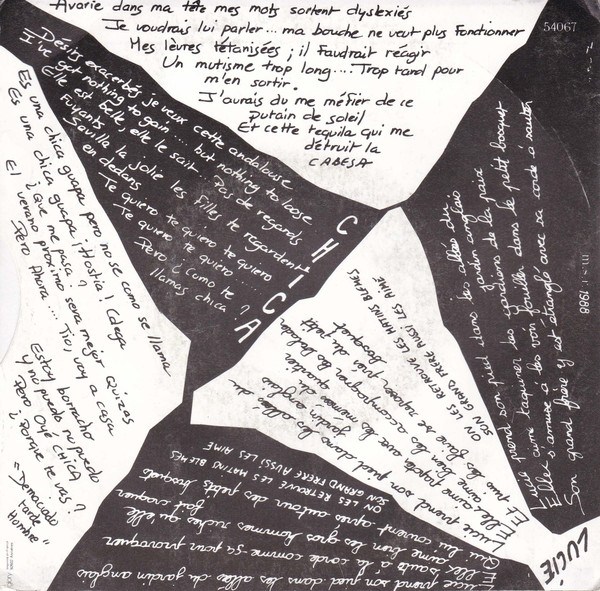 Avarie dans ma tête mes mots sortent dyslexiés
Je voudrais lui parler... ma bouche ne veut plus fonctionner
Mes lèvres tétanisées ; il faudrait réagir
Un mutisme trop long... Trop tard pour
m'en sortir.
J'aurais du me méfier de ce
putain de soleil
Et cette tequila qui me
détruit la
CABESA
54067
Désirs exacerbés je veux cette andalouse
I've got nothing to gain ... but nothing to loose
Elle est belle, elle le sait ... Pas de regards
fuyants !
Sevilla la jolie les filles te regardent
en dedans
Te quiero te quiero te quiero
Te quiero te quiero ...
Pero ¿ Como te
llamas chica ?
CHICA
Es una chica guapa pero no se como se llama
Es una chica guapa ¡ Hostia ! Colega
¿ Que me pasa ?
El verano proximo sera mejor Quizas
Pero Ahora ... Tio, voy a casa
Estoy borracho
y no puedo ni puedo
Pero Oyé CHICA
¿ Porque te vas ?
"Demaciado
tarde
Hombre"
Lucie prend son pied dans les allées du
jardin anglais
Elle aime taquiner les gardiens de la paix
Elle s'amuse à les voir fouiller dans le petit bosquet
Son grand frère y est étranglé avec sa corde à sauter
1988
ON LES RETROUVE LES MATINS BLEMES
SON GRAND FRERE AUSSI LES AIME
Lucie prend son pied dans les allées du
jardin anglais
ON LES RETROUVE LES MATINS BLEMES
SON GRAND FRERE AUSSI LES AIME
Lucie prend son pied dans les allés du jardin anglais
Elle saute à la corde comme ça pour provoquer
Elle aime bien les gros hommes riches qu'elle fait craquer
Qui lui courent après autour des petits bosquets
LUCIE